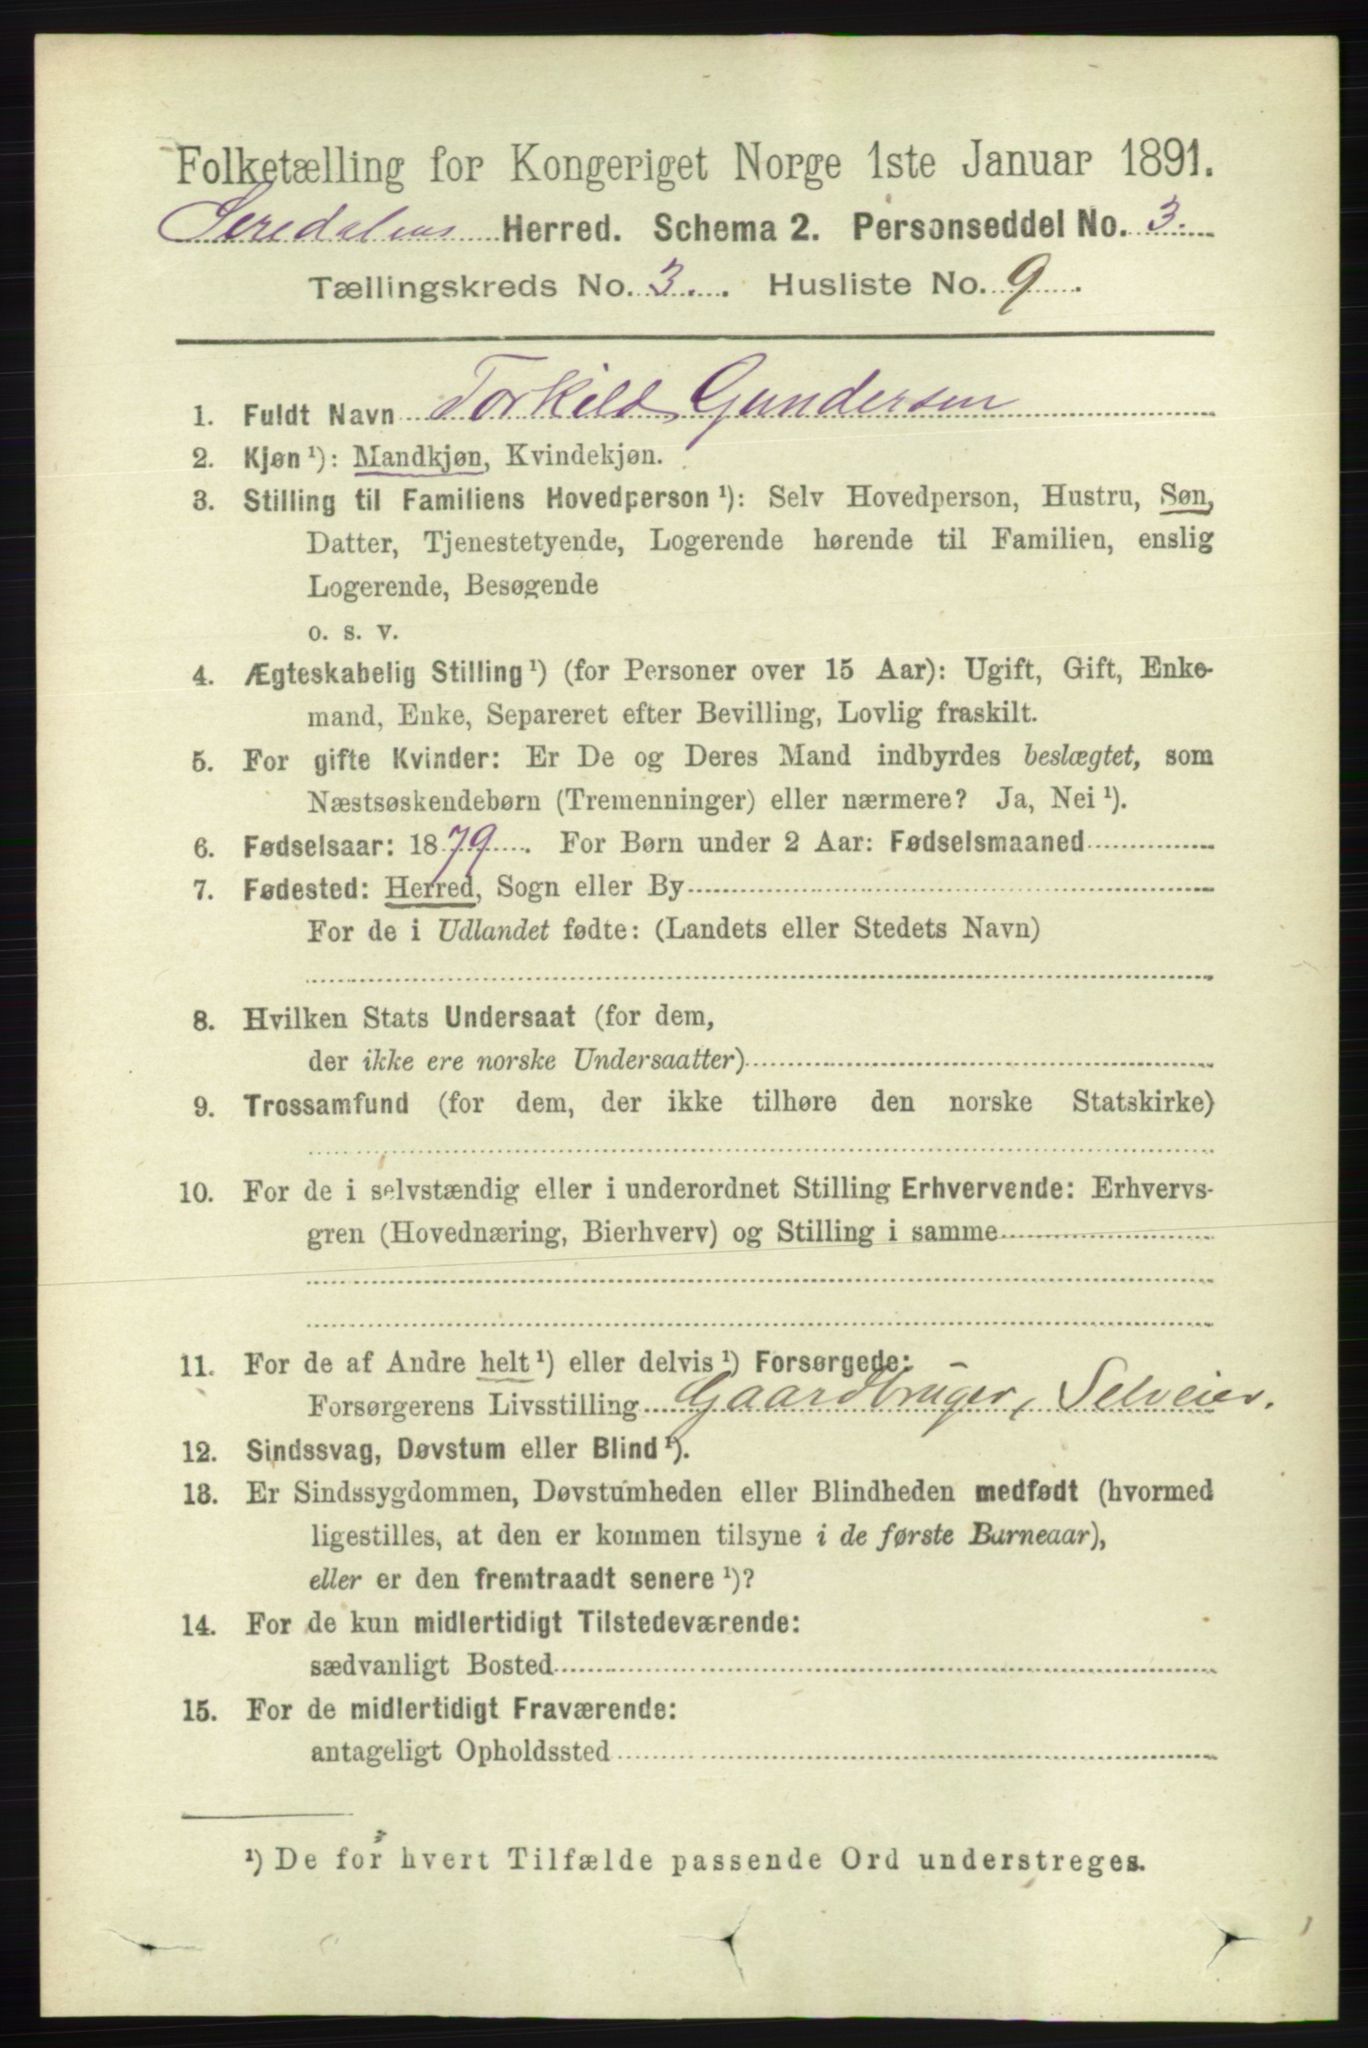 Folketælling for Kongeriget Norge 1ste Januar 1891.
Siredalens Herred. Schema 2. Personseddel No. 3.
Tællingskreds No. 3. Husliste No. 9.
1. Fuldt Navn Torkild Gundersen
2. Kjøn ¹): Mandkjøn, Kvindekjøn.
3. Stilling til Familiens Hovedperson ¹): Selv Hovedperson, Hustru, Søn,
Datter, Tjenestetyende, Logerende hørende til Familien, enslig
Logerende, Besøgende
o. s. v.
4. Ægteskabelig Stilling ¹) (for Personer over 15 Aar): Ugift, Gift, Enke-
mand, Enke, Separeret efter Bevilling, Lovlig fraskilt.
5. For gifte Kvinder: Er De og Deres Mand indbyrdes beslægtet, som
Næstsøskendebørn (Tremenninger) eller nærmere? Ja, Nei ¹).
6. Fødselsaar: 1879. For Børn under 2 Aar: Fødselsmaaned
7. Fødested: Herred, Sogn eller By
For de i Udlandet fødte: (Landets eller Stedets Navn)
8. Hvilken Stats Undersaat (for dem,
der ikke ere norske Undersaatter)
9. Trossamfund (for dem, der ikke tilhøre den norske Statskirke)
10. For de i selvstændig eller i underordnet Stilling Erhvervende: Erhvervs-
gren (Hovednæring, Bierhverv) og Stilling i samme
11. For de af Andre helt ¹) eller delvis ¹) Forsørgede:
Forsørgerens Livsstilling Gaardbruger, Selveier.
12. Sindssvag, Døvstum eller Blind ¹).
13. Er Sindssygdommen, Døvstumheden eller Blindheden medfødt (hvormed
ligestilles, at den er kommen tilsyne i de første Barneaar),
eller er den fremtraadt senere ¹)?
14. For de kun midlertidigt Tilstedeværende:
sædvanligt Bosted
15. For de midlertidigt Fraværende:
antageligt Opholdssted
¹) De for hvert Tilfælde passende Ord understreges.